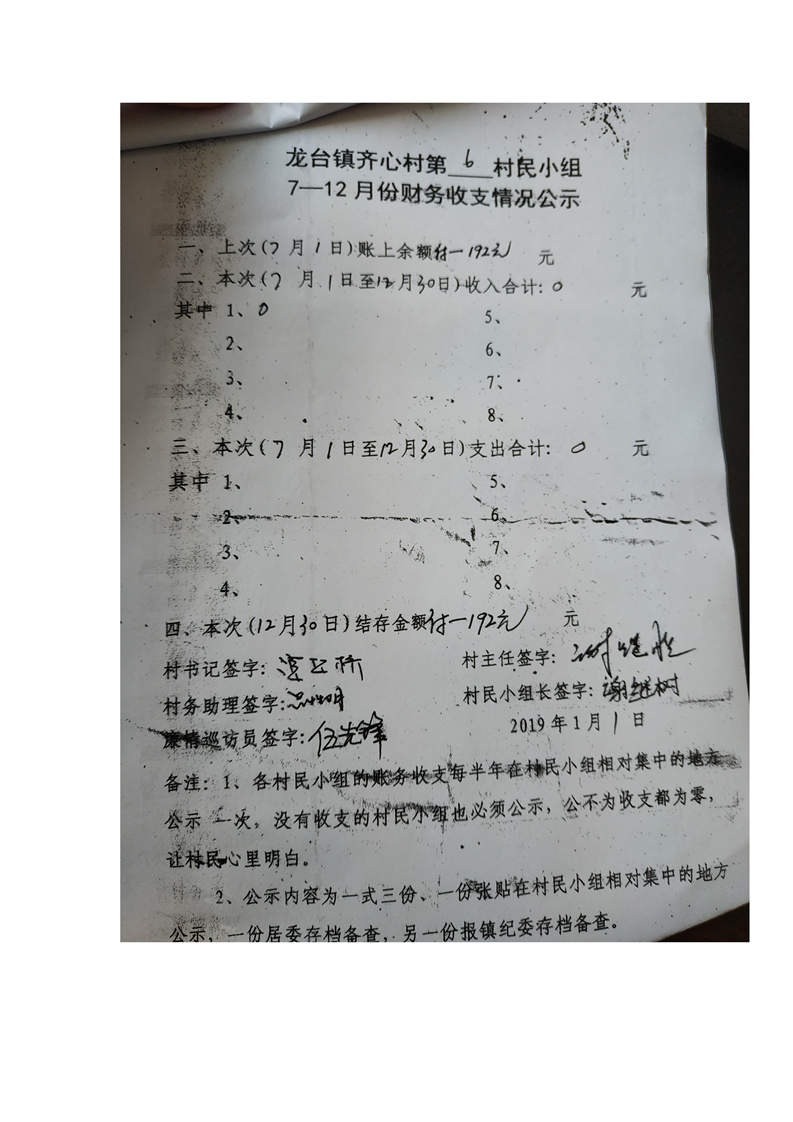 龙台镇齐心村第 6 村民小组
7—12月份财务收支情况公示
一、上次(7月1日)账上余额付一192元 元
二、本次(7月1日至12月30日)收入合计:0 元
其中 1、0 5、
2、 6、
3、 7、
4、 8、
三、本次(7月1日至12月30日)支出合计: 0 元
其中 1、 5、
2、 6、
3、 7、
4、 8、
四、本次(12月30日)结存金额付一192元 元
村书记签字: 村主任签字:
村务助理签字: 村民小组长签字:谢继树
廉情巡访员签字:伍先锋 2019年1月1日
备注:1、各村民小组的账务收支每半年在村民小组相对集中的地方
公示 一次,没有收支的村民小组也必须公示,公不为收支都为零,
让村民心里明白。
2、公示内容为一式三份、一份张贴在村民小组相对集中的地方
公示,一份居委存档备查,另一份报镇纪委存档备查。